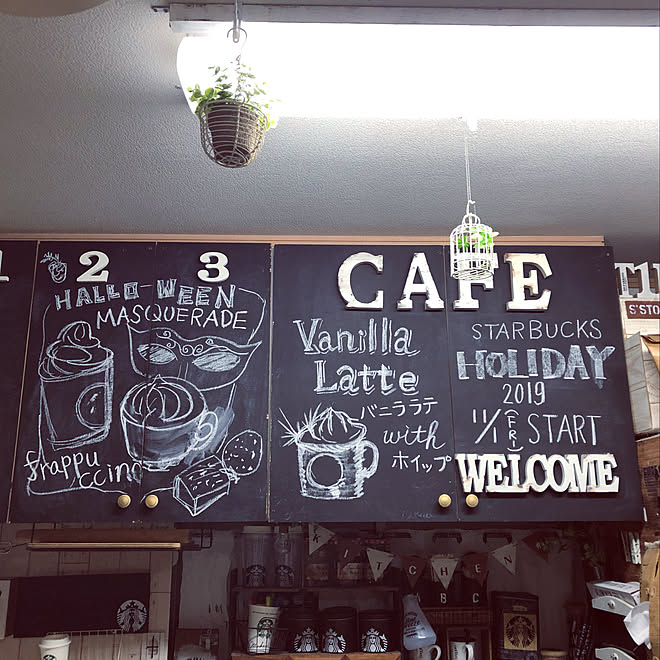 1
2 3
HALLO-WEEN
MASQUERADE
frappu
ccino
CAFE
Vanilla
Latte
バニララテ
with
ホイップ
STARBUCKS
HOLIDAY
2019
11/1 (FRI) START
WELCOME
KITCHEN
BC